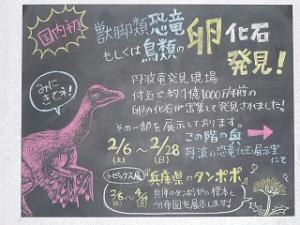 国内初
獣脚類恐竜
もしくは鳥類の
卵化石
発見!
みに
きてネ!
丹波竜発見現場
付近で約1億1000万年前の
卵の化石が密集して発見されました!
その一部を展示しております。
この階の奥
2/6(土)～2/28(日)
丹波の恐竜化石展示室
にて
トピックス展
兵庫県のタンポポ。
兵庫のタンポポの標本と
分布図を展示します!